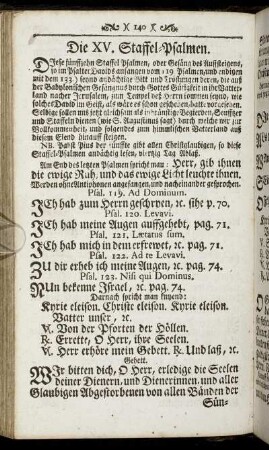 140
Die XV. Staffel-Psalmen.
Diese fünffzehn Staffel Psalmen, oder Gesäng des Auffsteigens,
so im Psalter Davids anfangen vom 119 Psalmen, und endigen
mit dem 133.) seynd andächtige Bitt und deren, die auß
der Babylonischen Gefängnus durch Gottes Gütigkeit in ihr Vatter-
land nacher Jerusalem, zum Tempel deß Herrn kommen seynd, wie
solches David im Geist, als wäre es schon geschehen, hatt vorgesehen.
Selbige sollen mit jetzt gleichsam als Begierden, Seufftzer
und Staffeln dienen (wie S. Augustinus sagt) durch welche wir zur
Vollkommenheit, und folgendes zum himmlischen Vatterland auß
diesem Elend hinauff steigen.
NB. Pabst Pius der fünffte gibt allen Christglaubigen, so diese
Staffel-Psalmen andächtig lesen, viertzig Tag Ablaß.
Am End deß letzten Psalmen spricht man: Herr, gib ihnen
die ewige Ruh, und das ewige Licht leuchte ihnen.
Werden ohne Antiphonen angefangen, und nacheinander gesprochen.
Psal. 119. Ad Dominum.
Ich hab zum Herrn geschryen, ꝛc. sihe p. 70.
Psal. 120. Levavi.
Ich hab meine Augen auffgehebt, pag. 71.
Psal. 121. Lætatus sum.
Ich hab mich in dem erfrewet, ꝛc. pag. 71.
Psal. 122. Ad te Levavi.
Zu dir erheb ich meine Augen, ꝛc. pag. 74.
Psal. 123. Nisi qui Dominus.
Nun bekenne Israel, ꝛc. pag. 74.
Darnach spricht man knyend:
Kyrie eleison. Christe eleison. Kyrie eleison.
Vatter unser, ꝛc.
℣. Von der Pforten der Höllen.
℟. Errette, O Herr, ihre Seelen.
℣. Herr erhöre mein Gebett. ℟. Und laß, ꝛc.
Gebett.
Wir bitten dich, O Herr, erledige die Seelen
deiner Dienern, und Dienerinnen, und aller
Glaubigen Abgestorbenen von allen Bänden der
Sün-